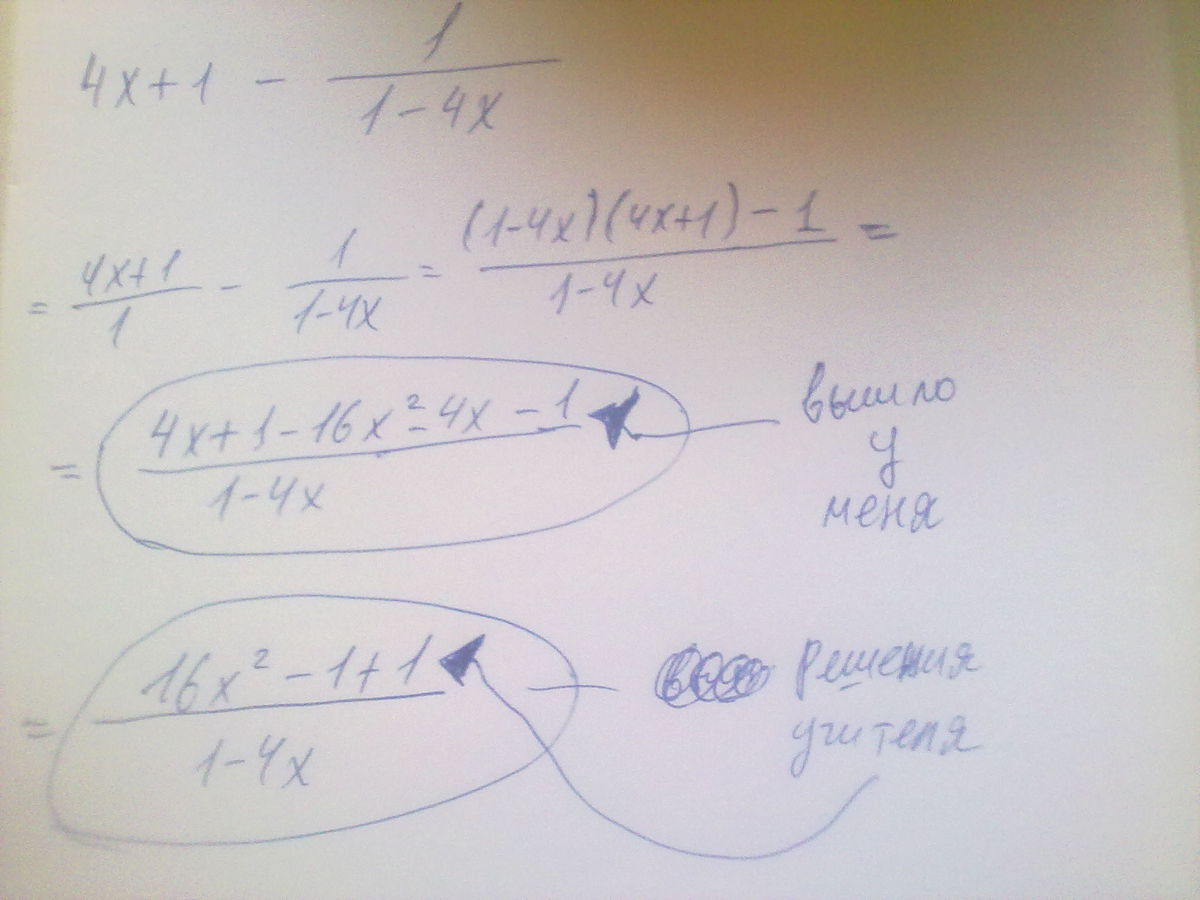 4x+1 - 1/(1-4x)
= (4x+1)/1 - 1/(1-4x) = ((1-4x)(4x+1)-1)/(1-4x) =
= (4x+1-16x²-4x-1)/(1-4x)
вышло
у
меня
= (16x²-1+1)/(1-4x)
Решения
учителя